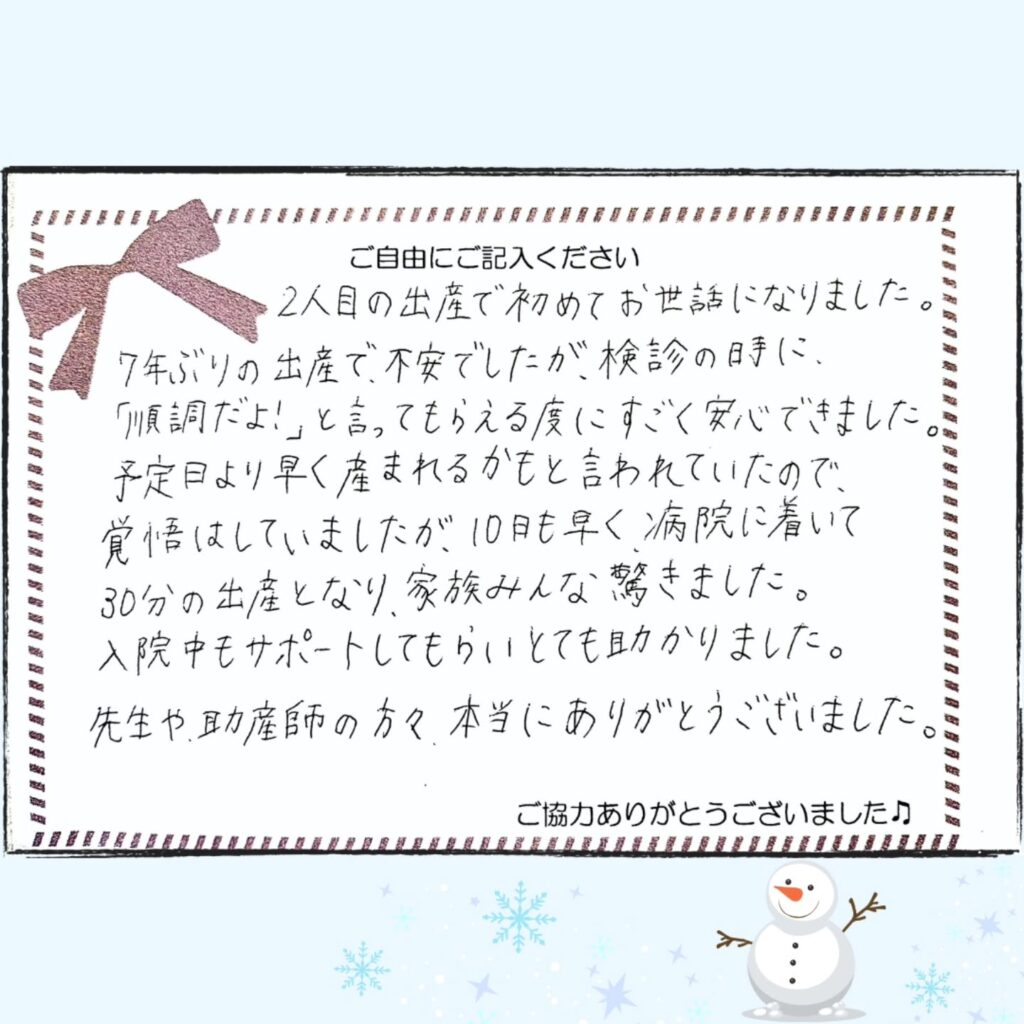 ご自由にご記入ください
2人目の出産で初めてお世話になりました。
7年ぶりの出産で、不安でしたが、検診の時に、
「順調だよ!」と言ってもらえる度にすごく安心できました。
予定日より早く産まれるかもと言われていたので、
覚悟はしていましたが、10日も早く、病院に着いて
30分の出産となり、家族みんな驚きました。
入院中もサポートしてもらいとても助かりました。
先生や、助産師の方々、本当にありがとうございました。
ご協力ありがとうございました♫